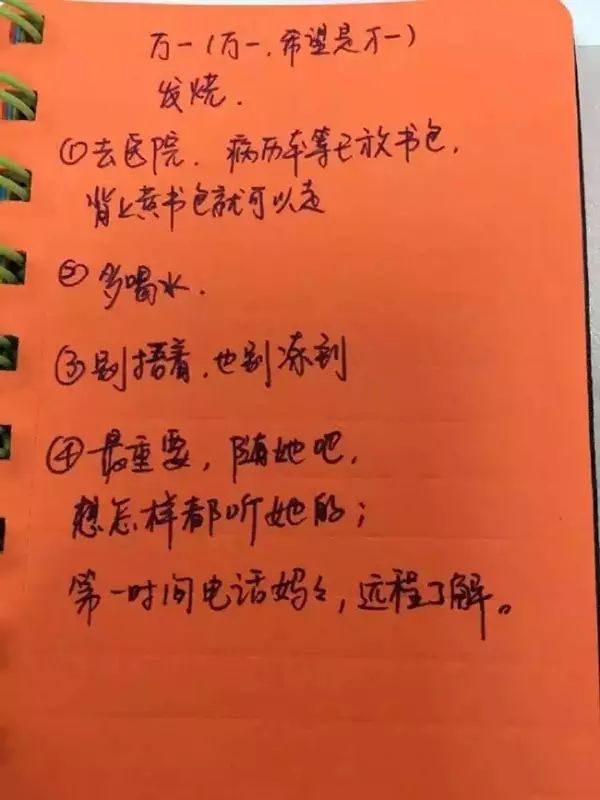 万一(万一,希望是不一)
发烧.
①去医院.病历本等已放书包,
背上黄书包就可以走
②多喝水.
③别捂着,也别冻到
④最重要,随她吧,
想怎样都听她的;
第一时间电话妈々,远程了解。